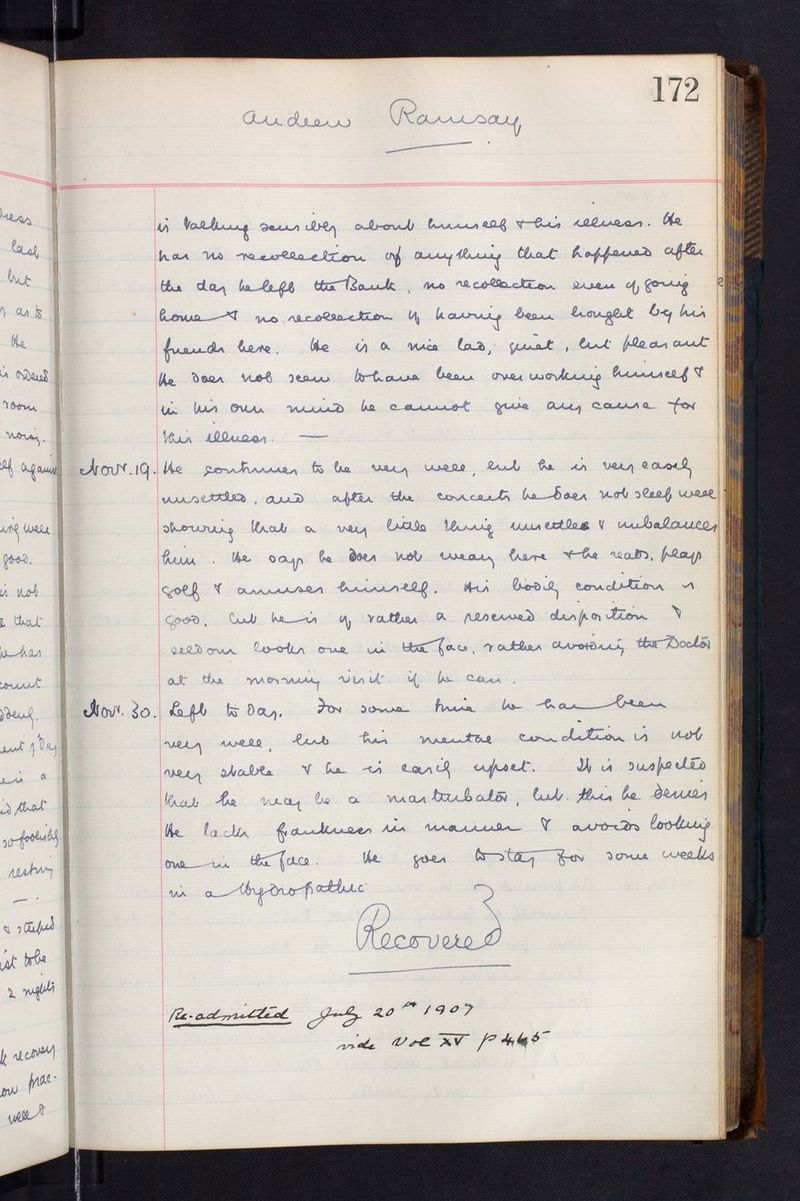 172
Andrew Ramsay
is talking sensibly about himself & his illness. He
has no recollection of anything that happened after
the day he left the Bank, no recollection even of going
home & no recollection of having been brought by his
friends here. He is a nice lad, quiet, but pleasant
He does not seem to have been overworking himself &
in his own mind he cannot give any cause for
this illness. —
Nov. 19. He continues to be very well, but he is very easily
unsettled, and after the concerts he does not sleep well
showing that a very little thing unsettles & unbalances
him. He says he does not weary here & he reads, plays
golf & amuses himself. His bodily condition is
good, but he is of rather a reserved disposition &
seldom looks one in the face, rather avoiding the Doctor
at the morning visit if he can.
Nov. 30. Left to day. For some time he has been
very well, but his mental condition is not
very stable & he is easily upset. It is suspected
that he may be a masturbator, but this he denies
He lacks frankness in manner & avoids looking
one in the face. He goes to stay for some weeks
in a Hydropathic
Recovered
Re-admitted July 20th 1907
vide Vol XV p 465
last
but
as to
He
is ordered
room
noisy.
good.
is not
that
he has
is a
that
so foolishly
—.
& stupid
to be
2 nights
recovery
prac-
well &